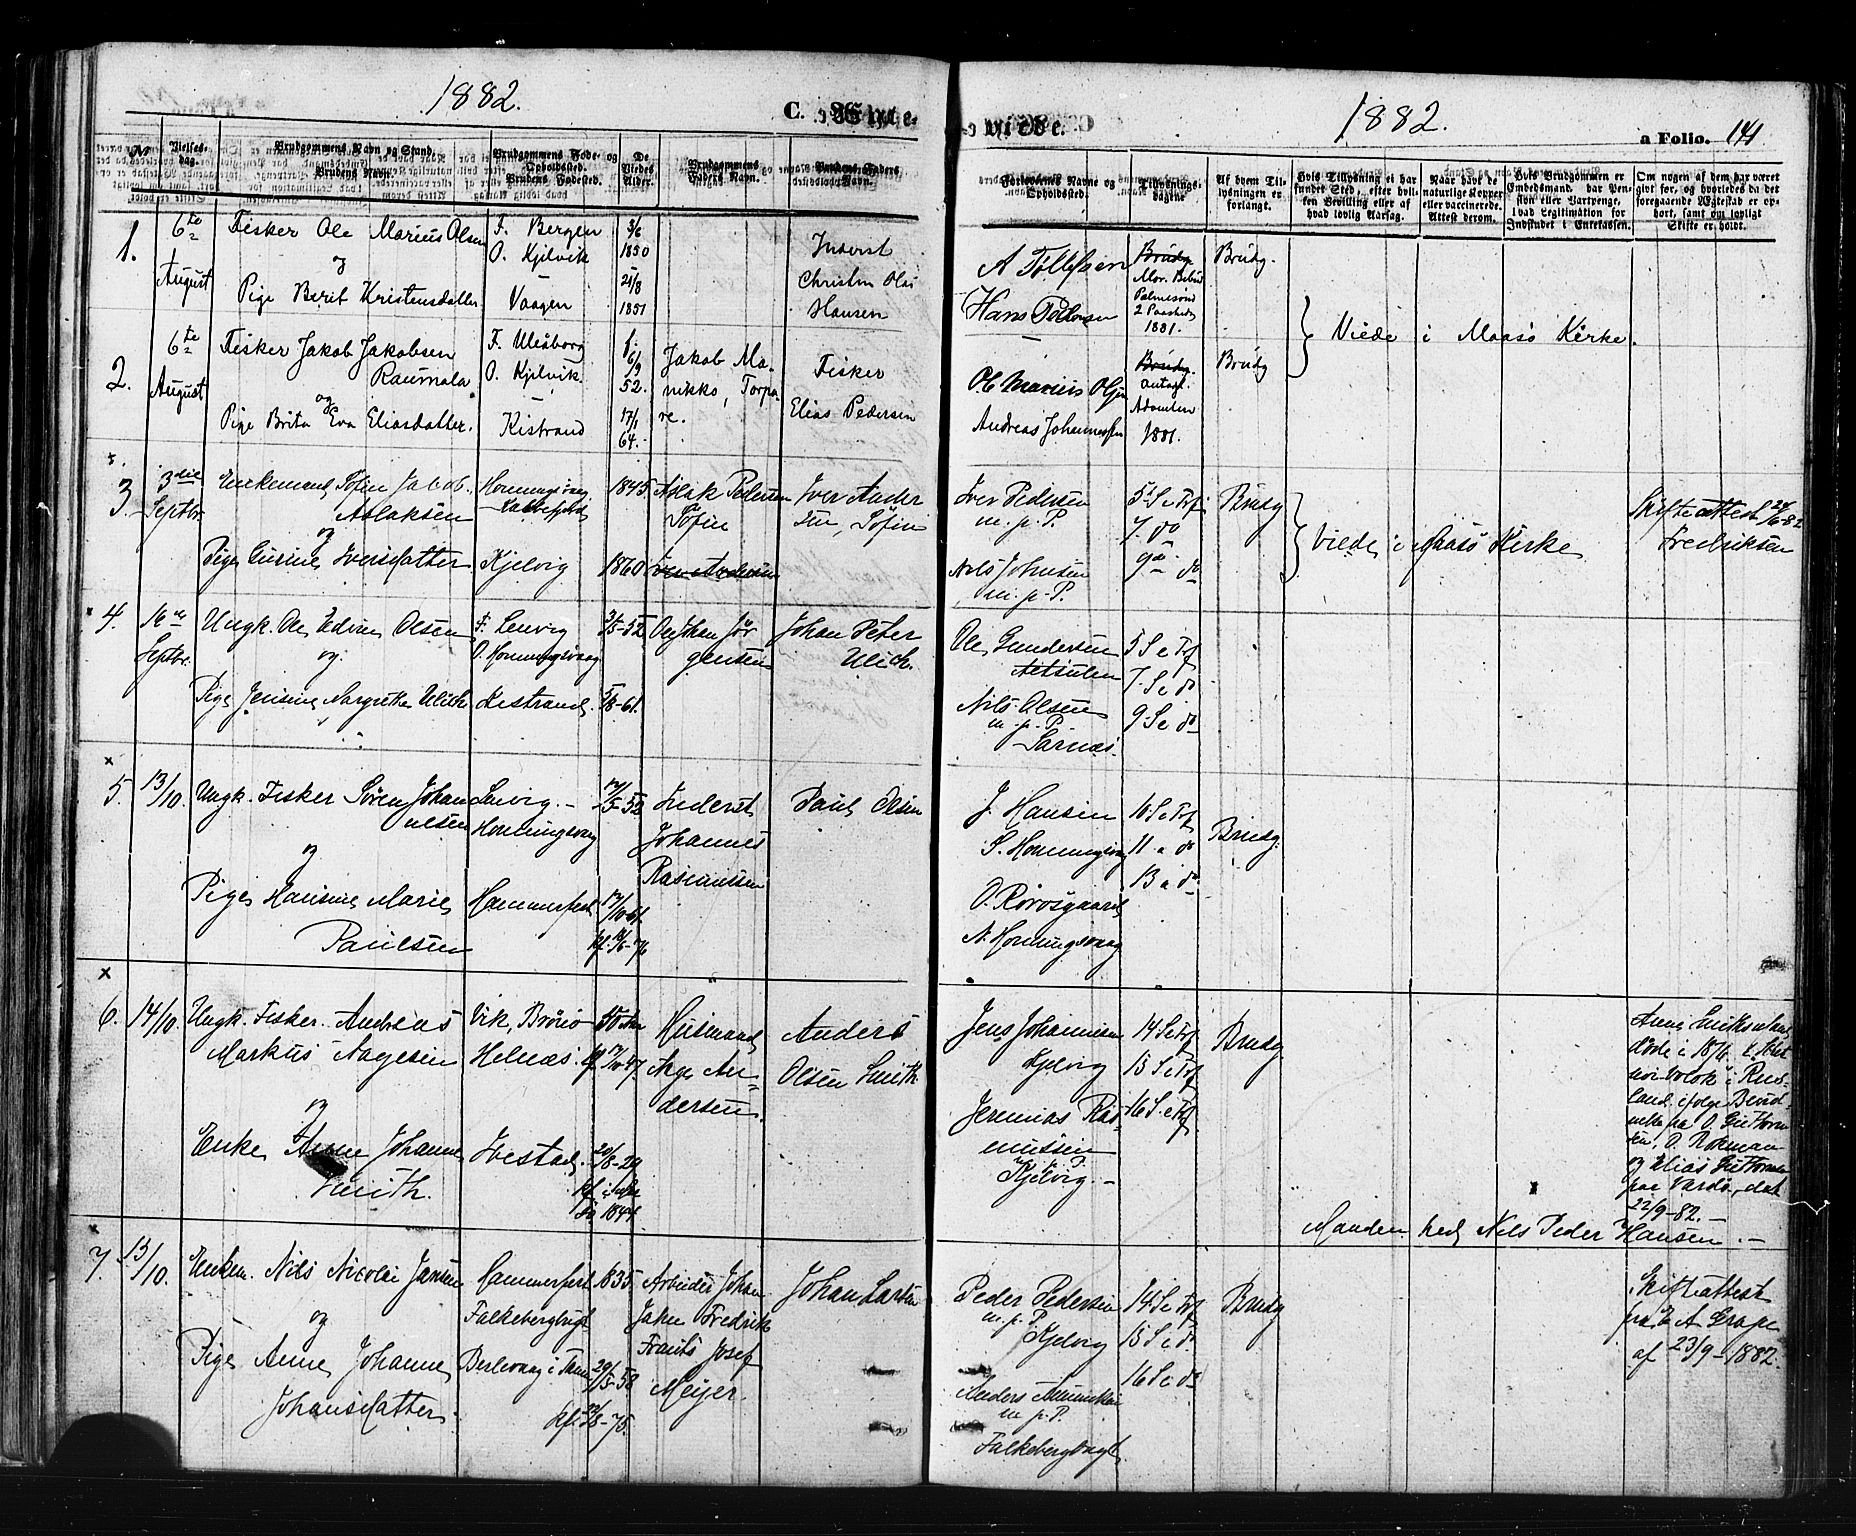 1882.
C. Viede.
1882.
a Folio. 141
№
Vielses-dag.
Brudgommens Navn og Stand, og Brudens Navn.
Brudgommens Føde- og Opholdssted. Brudens Fødested.
De Viedes Alder.
Brudgommens Faders Navn.
Brudens Faders Navn.
Forlovernes Navne og Opholdssted.
Tillysnings-dagene
Af hvem Tillysningen er forlangt.
Hvis Tillysning ei har fundet Sted, efter hvilken Bevilling eller af hvad lovlig Aarsag.
Naar havt de naturlige Kopper eller vaccinerede. Attest derom.
Hvis Brudgommen er Embedsmand, har Pension eller Vartpenge, hvad Legitimation for Indskudet i Enkekassen.
Om nogen af dem har været gift før, og hvorledes da det foregaaende Ægtestab er ophørt, samt om lovligt Skifte er holdt.
1.
6te
August
Fisker Ole Marius Olsen
og
Pige Berit Kristensdatter
F. Bergen
O. Kjelvik
Vaagen
3/6
1850
21/8
1851
Inderst
Christen Olai
Hansen
A Tollefsen
Hans Pedersen
Brudg.
Palmesønd
2 Paaskedag
1881.
Brudg.
Viede i Maasø Kirke.
2.
6te
August
Fisker Jakob Jakobsen
Raumala
og
Pige Brita Eva Eliasdatter.
F. Uleåborg
O. Kjelvik
Kistrand
f.
6/9
52.
17/1
64.
Jakob Manikko, Torpare.
Fisker
Elias Pedersen
Ole Marius Olsen
Andreas Johannessen
Brudg.
antagl.
Adventen
1881.
Brudg
3.
3die
Septbr.
Enkemand, Søfin Jakob
Aslaksen
og
Pige Gusine Iversdatter
Honningsvaag
Kjelvig
1845
1860
Aslak Pedersen
Søfin
Iver Andersen
Iver Andersen, Søfin
Iver Pedersen
m. p. P.
Nils Johnsen
m. p. P.
5 S e Trf
7. do
9de do
Brudg
Viede i Maasø Kirke
Skifteattest 24/6-82
Fredriksen
4.
16de
Septbr.
Ungk. Ole Edvin Olsen
og
Pige Jensine Margrethe Ulich
F. Lenvig
O. Honningsvaag
Kistrand
2/5-52
5/8-61.
Ole Johan Jørgensen
Johan Peter
Ulich.
Ole Gundersen
Nils Olsen
m. p. P.
Sarnæs.
5 S e Trf
7. S e do
9. S e do
5.
13/10.
Ungk. Fisker Søren Johannesen
og
Pige Hansine Marie
Paulsen
Lenvig.
Honningsvaag
Hammerfest
17/5-52
17/10-61.
Inderst
Johannes
Rasmussen
Paul Olsen
J. Hansen
S. Honningsvaag
O. Rørøsgaard
N. Honningsvaag
10. S e Trf
11 a do
13 a do
Brudg.
6.
14/10.
Ungk. Fisker. Andreas
Markus Aagesen
og
Enke Anne Johanne
Smith.
Vik, Brønø
Helnæs.
Ibestad.
20/8-29
1844.
Husmand
Aage Andersen
Anders
Olsen Smith
Jens Johannesen
Kjelvig
Jeremias Rasmussen
m. p. P.
Kjelvig. -
14 S e Trf
15 S e Trf
16 S. e Trf
Brudg
døde i 1876
Rusland ifølge
O. Guttormsen,
og Elias Guttormsen
paa Vardø, dat
22/9-82. -
Manden hed Nils Peder Hansen. -
7.
13/10.
Enkem. Nils Nicolai Jansen
og
Pige Anne Johanne
Johansdatter.
Hammerfest
Falkebergbugt
Berlevaag i Tanen
1835
29/5-58
-75.
Arbeider Johan
Fredrik
Frants Josef
Meijer.
Johan Larsen
Peder Pedersen
m. p. P.
Kjelvig
Anders
m. p. P.
Falkebergbugt
14 S e Trf
15 S e do
16 S e do
Brudg
Skifteattest
fra E A Grape
af 23/9-1882.